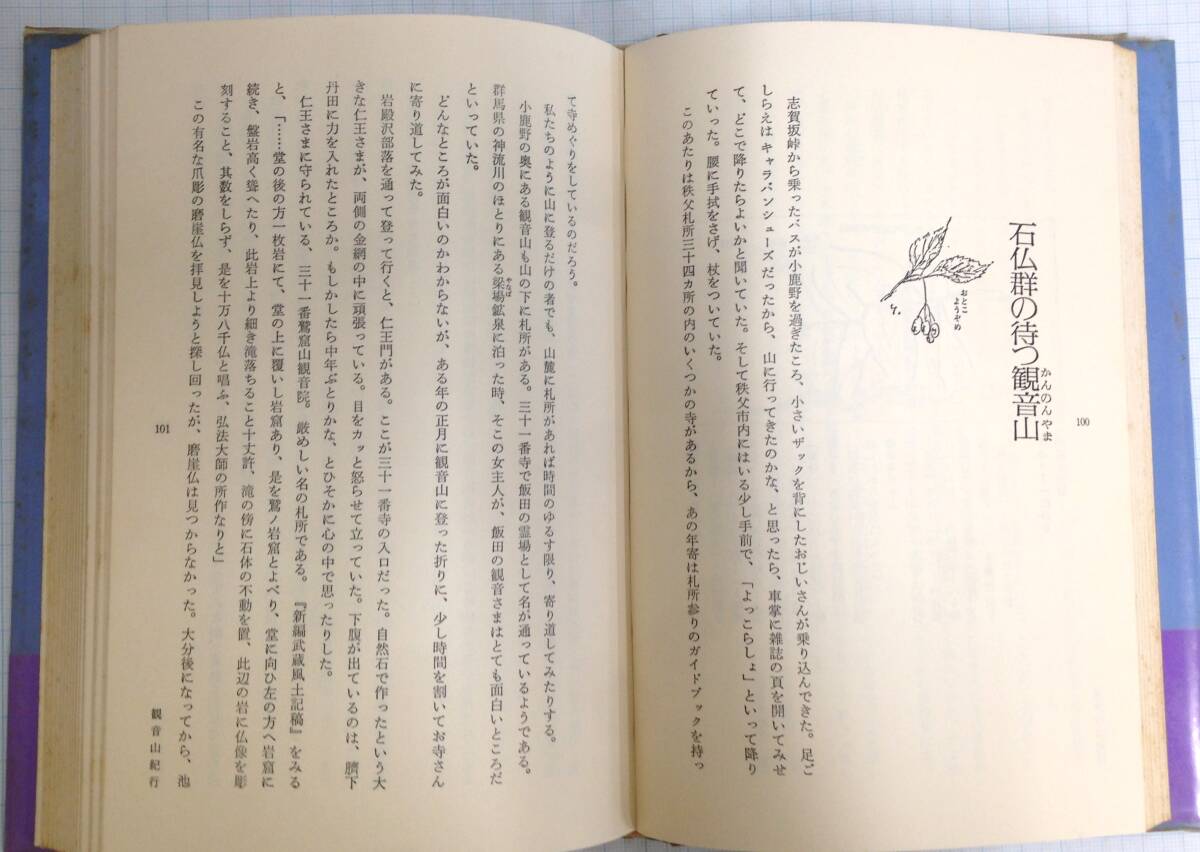 石仏群の待つ観音山
かんのんやま
おとこ
ようぞめ
志賀坂峠から乗ったバスが小鹿野を過ぎたころ、小さいザックを背にしたおじいさんが乗り込んできた。足ご
しらえはキャラバンシューズだったから、山に行ってきたのかな、と思ったら、車掌に雑誌の頁を開いてみせ
て、どこで降りたらよいかと聞いていた。そして秩父市内にはいる少し手前で、「よっこらしょ」といって降り
ていった。腰に手拭をさげ、杖をついていた。
このあたりは秩父札所三十四カ所の内のいくつかの寺があるから、あの年寄は札所参りのガイドブックを持っ
100
て寺めぐりをしているのだろう。
私たちのように山に登るだけの者でも、山麓に札所があれば時間のゆるす限り、寄り道してみたりする。
小鹿野の奥にある観音山も山の下に札所がある。三十一番寺で飯田の霊場として名が通っているようである。
群馬県の神流川のほとりにある梁場鉱泉に泊った時、そこの女主人が、飯田の観音さまはとても面白いところだ
やなば
といっていた。
どんなところが面白いのかわからないが、ある年の正月に観音山に登った折りに、少し時間を割いてお寺さん
に寄り道してみた。
岩殿沢部落を通って登って行くと、仁王門がある。ここが三十一番寺の入口だった。自然石で作ったという大
きな仁王さまが、両側の金網の中に頑張っている。目をカッと怒らせて立っていた。下腹が出ているのは、臍下
丹田に力を入れたところか。もしかしたら中年ぶとりかな、とひそかに心の中で思ったりした。
仁王さまに守られている、三十一番鷲窟山観音院。厳めしい名の札所である。『新編武蔵風土記稿』をみる
と、「……堂の後の方一枚岩にて、堂の上に覆いし岩窟あり、是を鷲ノ岩窟とよべり、堂に向ひ左の方へ岩窟に
続き、盤岩高く聳へたり、此岩上より細き滝落ちること十丈許、滝の傍に石体の不動を置、此辺の岩に仏像を彫
刻すること、其数をしらず、是を十万八千仏と唱ふ、弘法大師の所作なりと」
この有名な爪彫の磨崖仏を拝見しようと探し回ったが、磨崖仏は見つからなかった。大分後になってから、池
101
観音山紀行